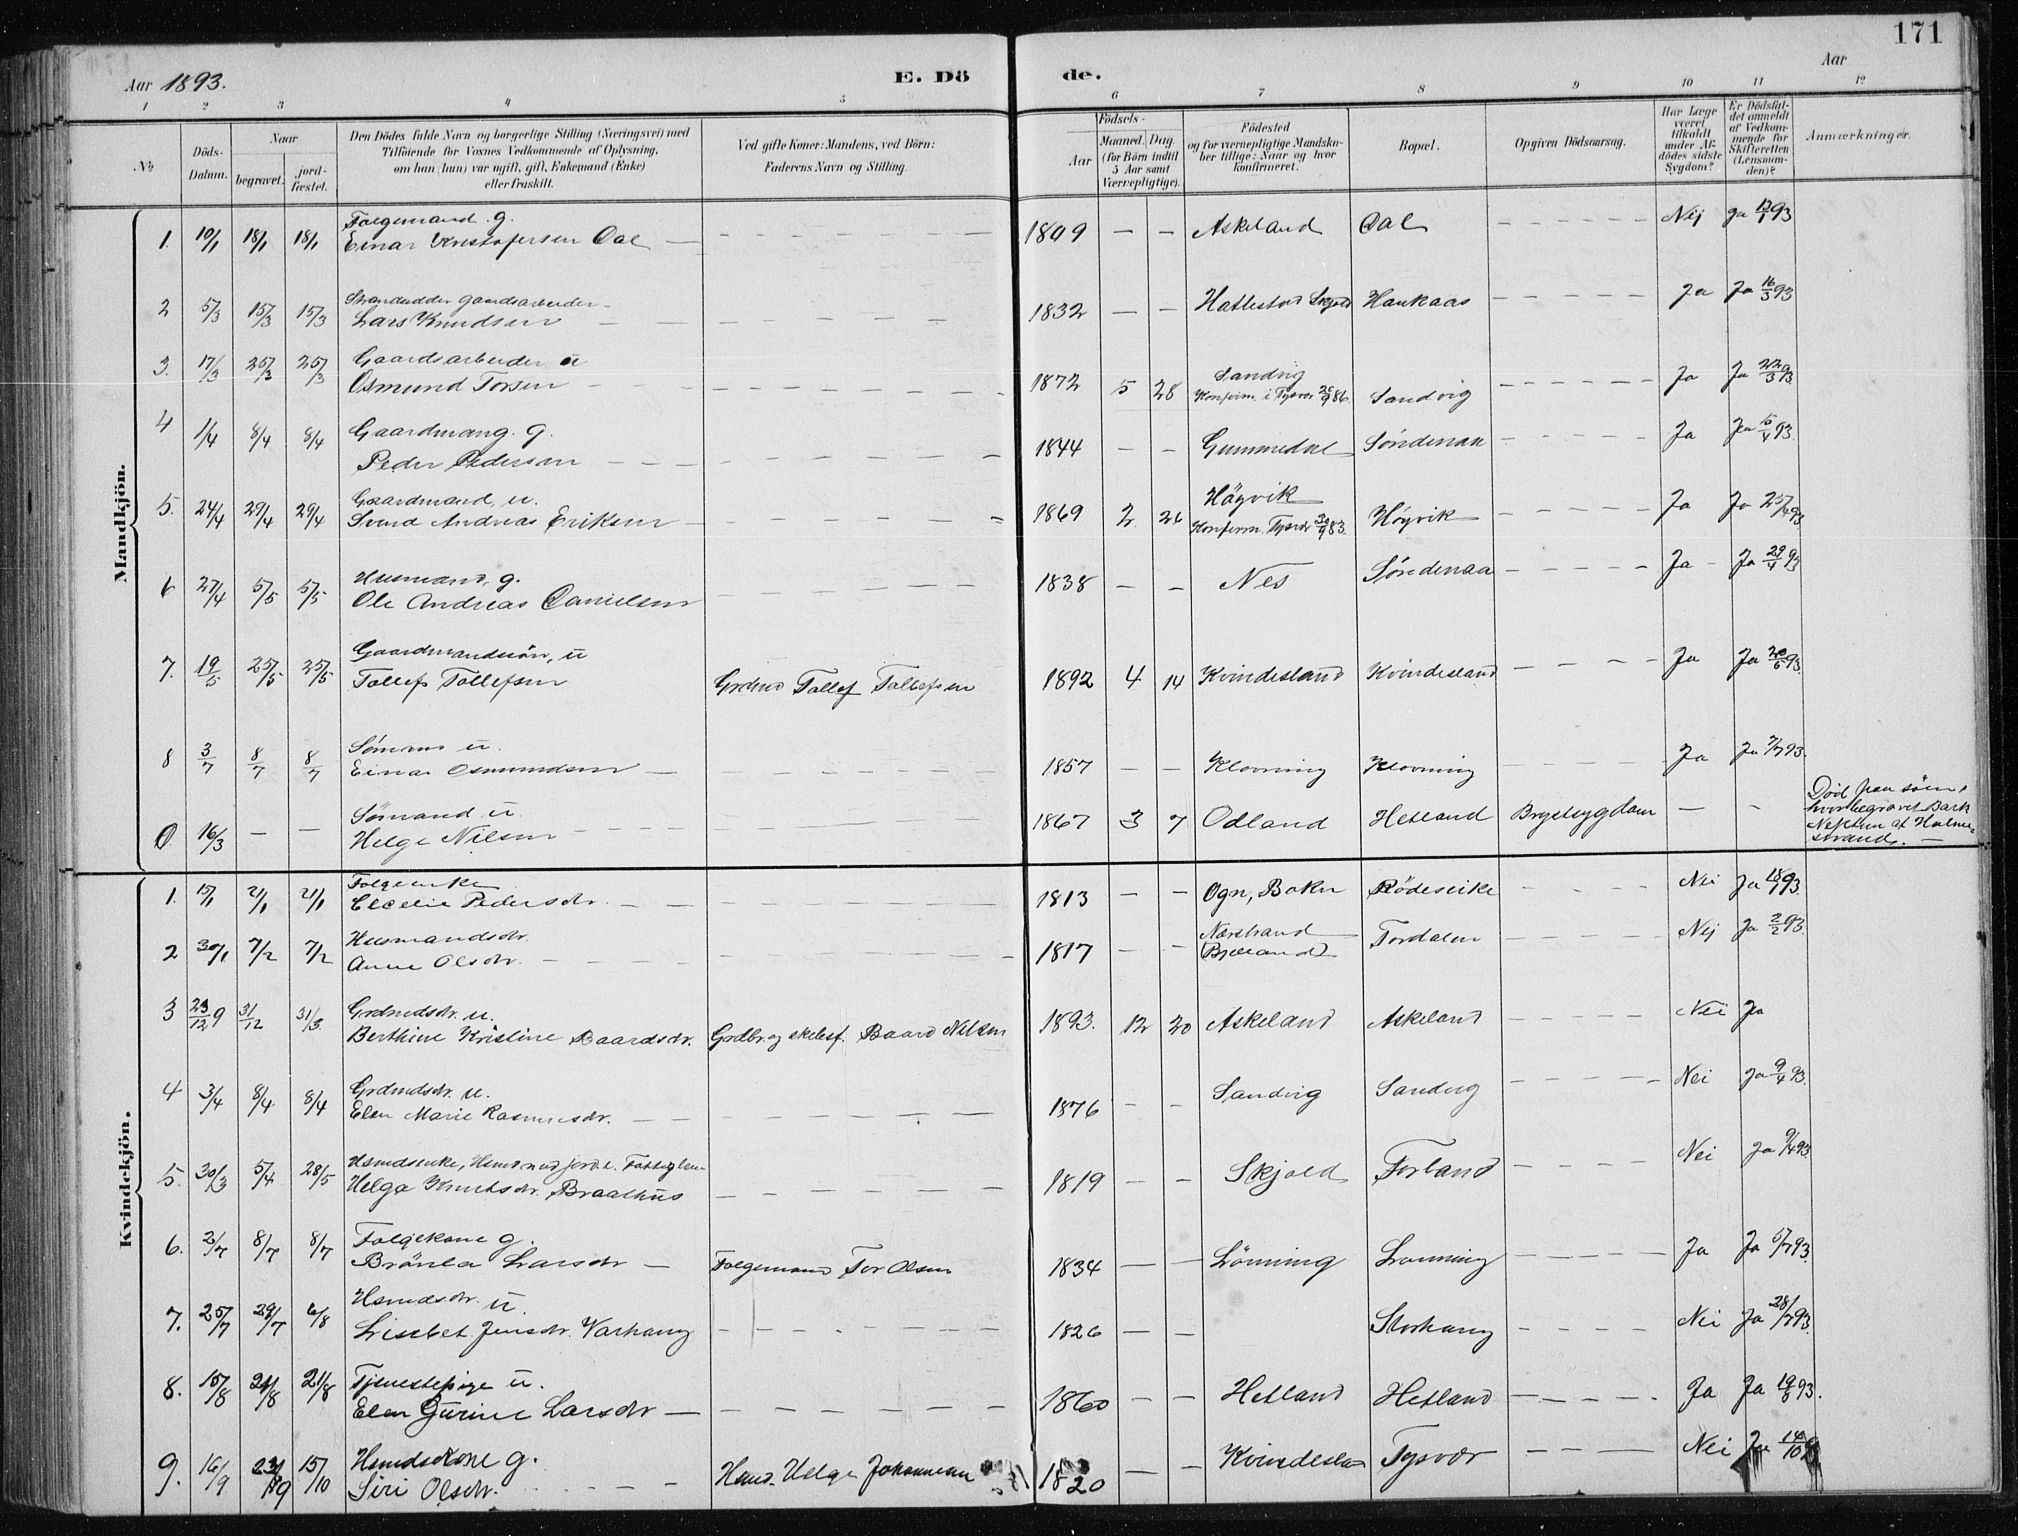 171
Aar 1893.
E. Dö
de.
Aar
1 2 3 4 5 6 7 8 9 10 11 12
No
Döds-Datum.
Naar
begravet.
jord-fæstet.
Den Dödes fulde Navn og borgerlige Stilling (Næringsvei) med
Tilföiende for Voxnes Vedkommende af Oplysning,
om han (hun) var ugift, gift, Enkemand (Enke)
eller fraskilt.
Ved gifte Koner: Mandens, ved Börn:
Faderens Navn og Stilling.
Födsels-
Aar
Maaned. Dag.
(for Börn indtil
5 Aar samt
Værnepligtige).
Födested
og for værnepligtige Mandska-
ber tillige: Naar og hvor
konfirmeret.
Bopæl.
Opgiven Dödsaarsag.
Har Læge
været
tilkaldt
under Af-
dödes sidste
Sygdom?
Er Dödsfal-
det anmeldt
af Vedkom-
mende for
Skifteretten
(Lensman-
den)?
Anmærkninger.
Mandkjön.
Folgemand g.
1. 10/1 18/1 18/1 Einar Kristofersen Dal 1809 Askeland Dal Nej Ja 13/1 93
gaardsarbeider
2 5/3 15/3 15/3 Lars Knudsen 1832 Hattestad Skjold Haukaas Ja Ja 16/3 93
Gaardsarbeider u
3. 17/3 25/3 25/3 Osmund Torsen 1872 5 28 Sandvig Konfirm. i Tysvær 86. Sandvig Ja Ja 22/3 93
4 1/4 8/4 8/4 Gaardmang. g.
Peder Pedersen 1844 Gummedal Söndenaa Ja Ja 93.
Gaardmand, u.
5. 24/4 29/4 29/4 Svend Andreas Eriksen 1869 2 26 Högvik Konfirm. Tysvær 83. Högvik Ja Ja 25/4 93
Husmand, g.
6 27/4 5/5 5/5 Ole Andreas Danielsen 1838 Nes Söndenaa Ja Ja 29/4 93
Gaardmandssön, u
7. 19/5 25/5 25/5 Tollef Tollefsen Grdmd Tollef Tollefsen 1892 4 14 Kvindesland Kvindesland Ja Ja 20/5 93.
Sömand u.
8 3/7 8/7 8/7 Einar Osmundsen 1857 Klovning Klovning Ja Ja 7/7 93.
Sömand u.
0. 16/3 Helge Nilsen 1867 3 7 Odland Hetland Brystsygdom
Död paa söen,
hvor begravet Bark
Neptun af Holme-
strand.
Kvindekjön.
Folgeenke
1. 15/1 21/1 21/1 Cecelie Pedersdr. 1813 Ogn, Bokn Rödeseike Nei Ja 18/1 93.
Husmandsdr.
2 30/1 7/2 7/2 Anne Olsdr. 1817 Nærstrand Tordalen Nej Ja 2/2 93.
Grdmdsdr. u.
3 31/12 31/3. Berthine Kristine Baardsdr. Grdbr. og Baard Nilsen 1893. 12 20 Askeland Askeland Nei Ja
Grdmdsdr. u.
4 3/4 8/4 8/4 Elen Marie Rasmusdr. 1876 Sandvig Sandvig Nei Ja 9/4 93.
5. 30/3 5/4 28/5 Helga Knutsdr. Braathus 1819 Skjold Forland Nei Ja 9/4 93
Folgekone g.
6. 2/7 8/7 8/7 Brönla Larsdr Folgemand Tor Olsen 1834 Lönning Lonning Ja Ja 5/7 93.
Hsmdsdr. u.
7. 25/7 29/7 6/8 Lisebet Jensdr. Varhaug 1826 Storhaug Nei Ja 28/7 93.
Tjenestepige u.
8. 15/8 21/8 21/8 Elen Gurine Larsdr 1860 Hetland Hetland Ja Ja 19/8 93.
Hsmdskone g.
9. 16/9 15/10 Siri Olsdr. Hsmd. Helge Johannesen 1820 Kvindesland Tysvær Nei Ja 14/10